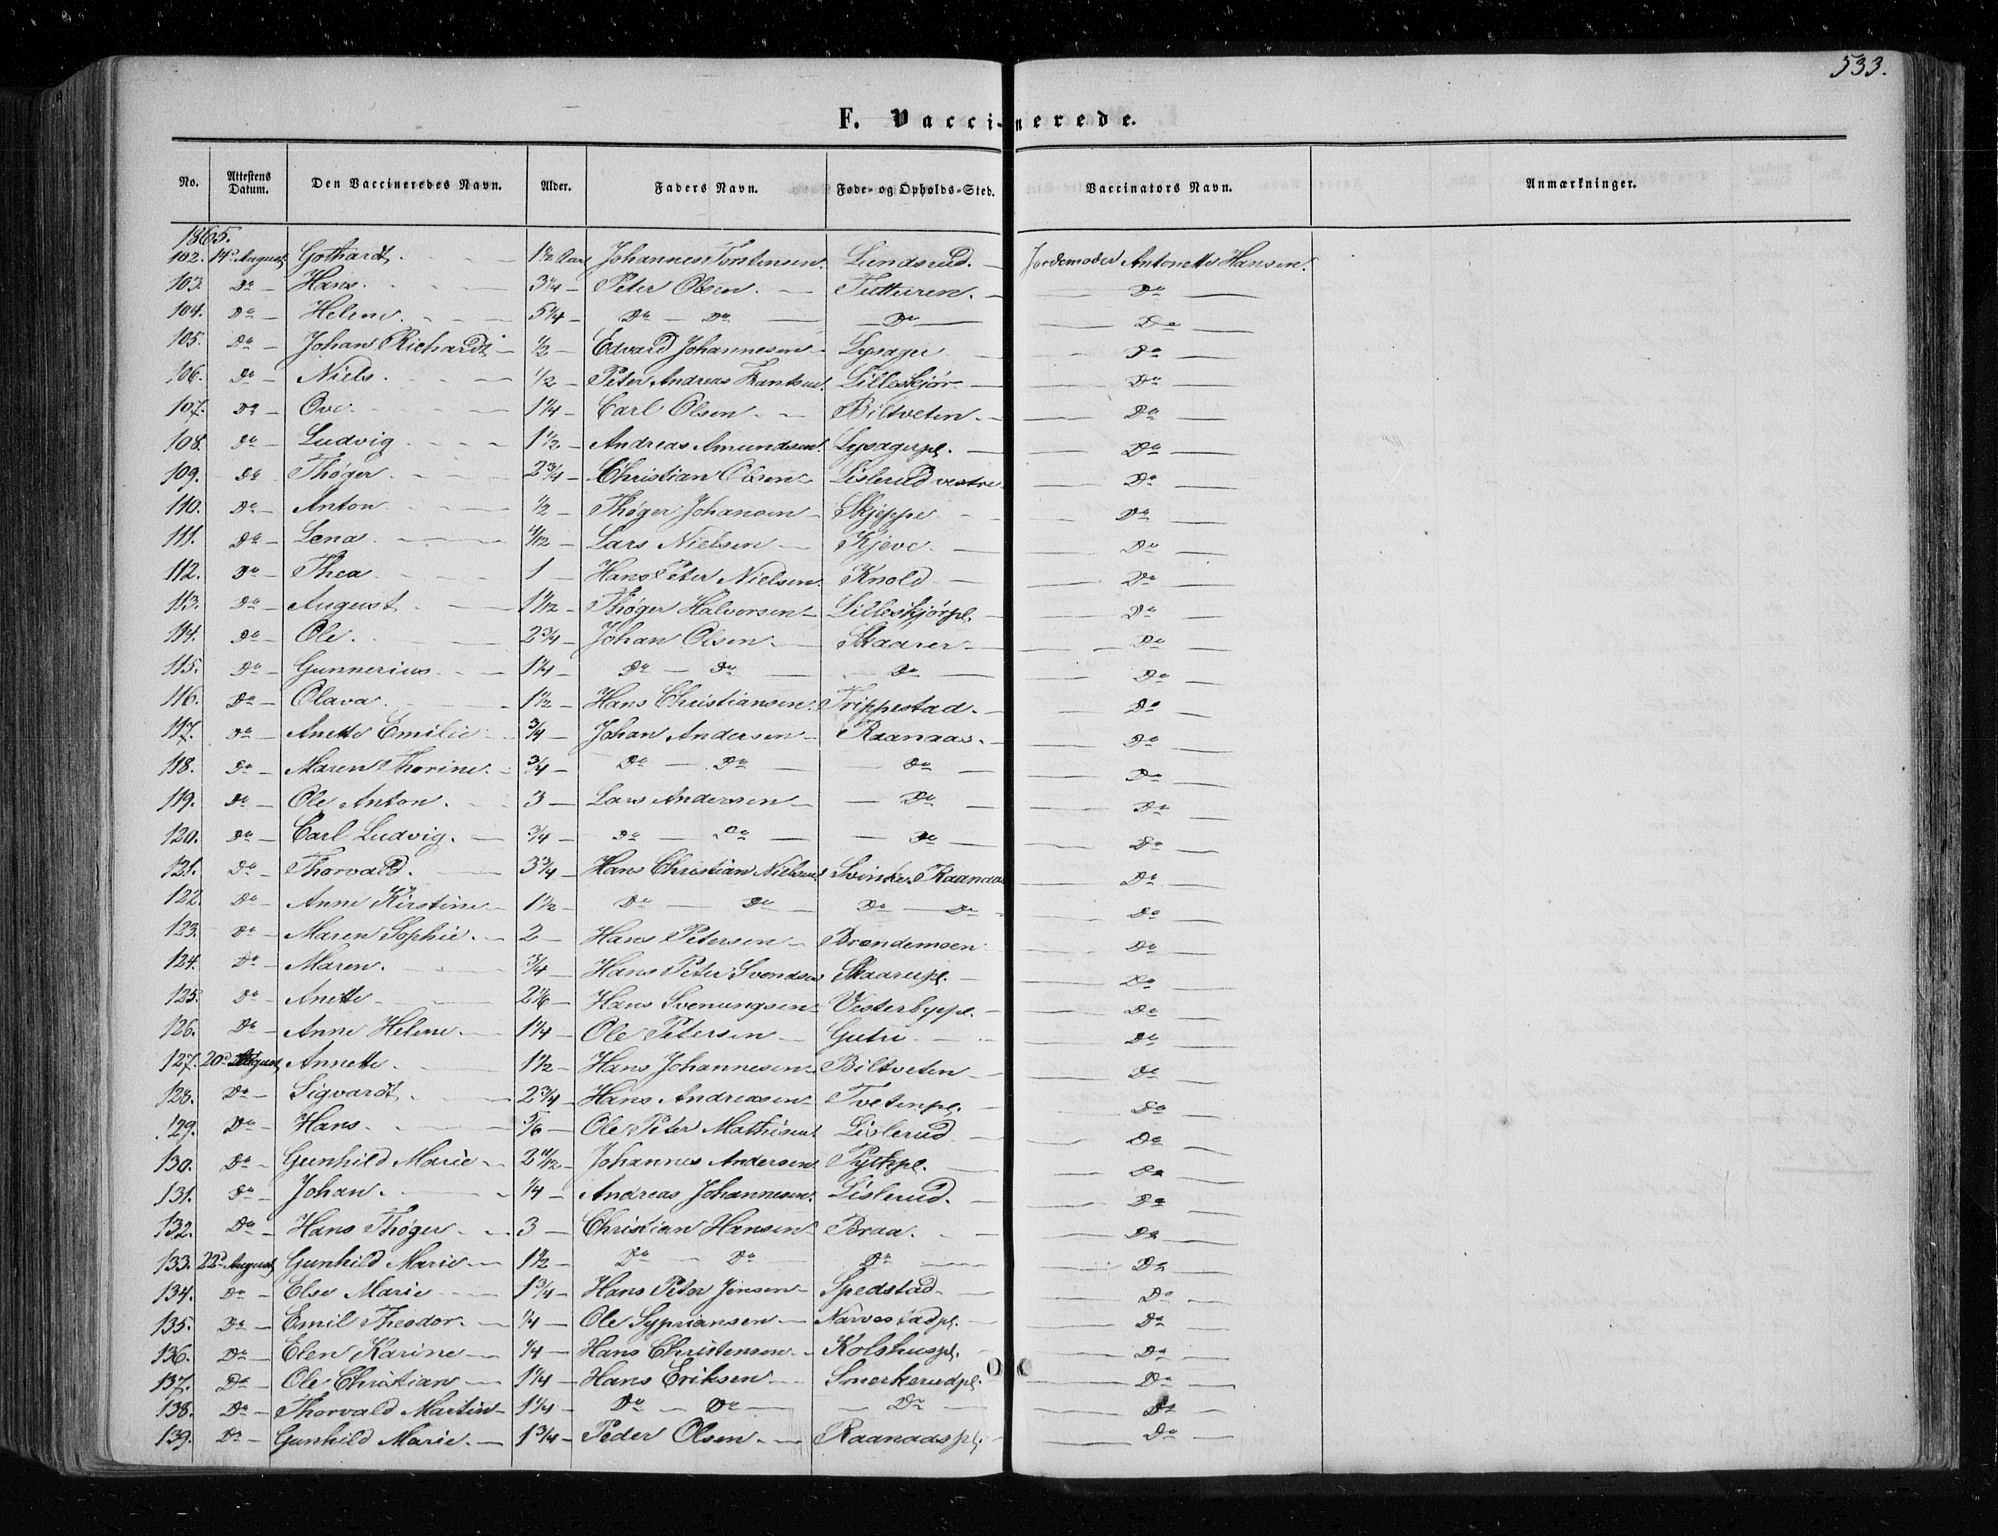 533.
F. Vaccinerede.
No. Attestens Datum. Den Vaccineredes Navn. Alder. Faders Navn. Føde- og Opholds-Sted. Vaccinators Navn. Anmærkninger.
1865.
102. 14d August Gothardt. 1 1/2 Aar Johannes Torstensen. Lundsrud. Jordemoder Antonette Hansen.
103. Do Hans. 3 1/4 Peter Olsen. Tutturen. Do
104. Do Helene. 5 1/4 Do Do Do Do
105. Do Johan Richardt 1/2 Edvard Johannesen Lysager Do
106. Do Niels. 1/2 Peter Andreas Lilleskjør Do
107. Do Ove. 1 1/4 Carl Olsen Biltveten. Do
108. Do Ludvig 1 1/2 Andreas Amundsen. Lysagerpl. Do
109. Do Thøger 2 3/4 Christian Olsen Lislerud vestre Do
110. Do Anton 1/2 Thøger Johansen Skjeppe Do
111. Do Lena 4/12 Lars Nielsen Kjeve. Do
112. Do Thea 1 Hans Peter Nielsen. Knold Do
113. Do August 1 1/12 Thøger Halvorsen Lilleskjørpl. Do
114. Do Ole. 2 3/4 Johan Olsen Skaarer Do
115. Do Gunnerius 1 1/4 Do Do Do Do
116. Do Olava 1 1/2 Hans Christiansen. Trippestad. Do
117. Do Anette Emilie 3/4 Johan Andersen Raanaas. Do
118. Do Maren Thorine. 3/4 Do Do Do Do
119. Do Ole Anton. 3 Lars Andersen Do Do
120. Do Carl Ludvig. 3/4 Do Do Do Do
121. Do Thorvald. 3 3/4 Hans Christian Nielsen Svinske Raanaas Do
122. Do Anne Kirstine 1 1/2 Do Do Do Do Do
123. Do Maren Sophie. 2 Hans Petersen Brændemoen Do
124. Do Maren. 3/4 Hans Peter Svendsen Skaarerpl. Do
125. Do Anette 2 1/6 Hans Svenungsen Vesterbypl. Do
126. Do Anne Helene 1 1/4 Ole Petersen Gutu Do
127. 20d August Annette. 1 1/2 Hans Johannesen Biltveten Do
128. Do Sigvardt 2 3/4 Hans Andreasen Tvetenpl. Do
129. Do Hans. 5/6 Ole Peter Mathisen. Lislerud Do
130. Do Gunhild Marie 2 4/12 Johannes Andersen Do
131. Do Johan. 1/4 Andreas Johannesen. Lislerud. Do
132. Do Hans Thøger 3 Christian Hansen Braa. Do
133. 22d August Gunhild Marie 1 1/2 Do Do Do Do
134. Do Else Marie 1 3/4 Hans Peter Jensen Spedstad. Do
135. Do Emil Theodor. 1/4 Ole Sypriansen Narvestadpl. Do
136. Do Elen Karine 1/4 Hans Christensen Kolshuspl. Do
137. Do Ole Christian 1 1/4 Hans Eriksen Smerkerudpl. Do
138. Do Thorvald Martin 1 1/4 Do Do Do Do
139. Do Gunhild Marie. 1 3/4 Peder Olsen Raanaaspl. Do